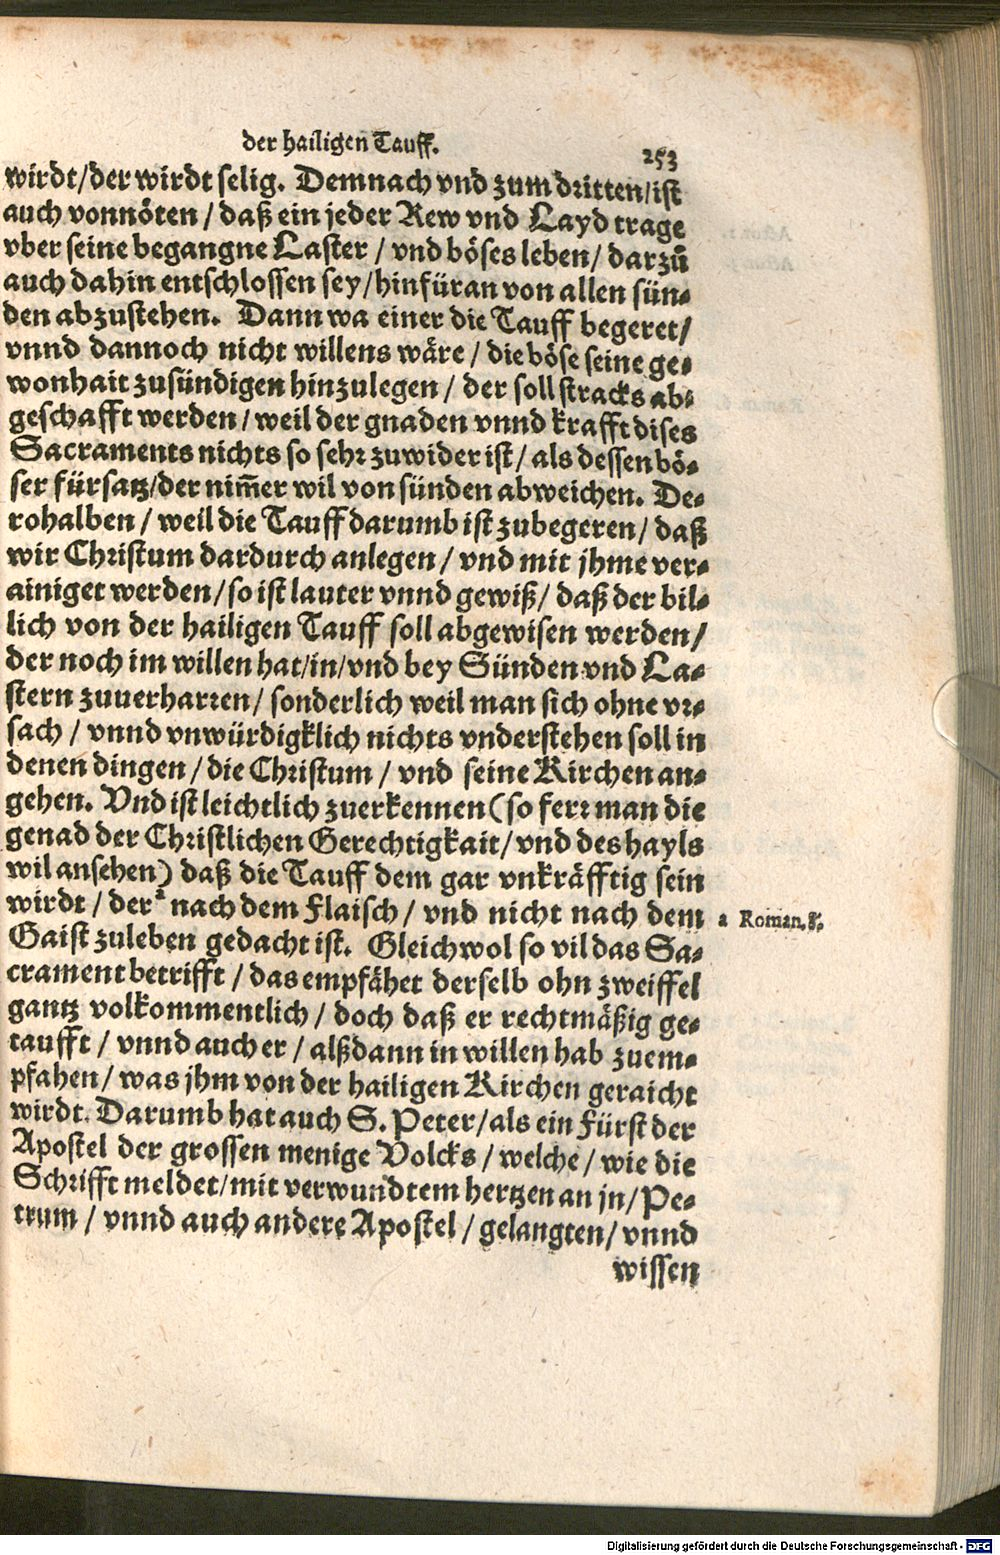 der hailigen Tauff.
253
wirdt/der wirdt selig. Demnach vnd zum dritten/ist
auch vonnöten / daß ein jeder Rew vnd Layd trage
vber seine begangne Laster / vnd böses leben/ darzů
auch dahin entschlossen sey/hinfüran von allen sün-
den abzustehen. Dann wa einer die Tauff begeret/
vnnd dannoch nicht willens wäre / die böse seine ge-
wonhait zusündigen hinzulegen / der soll stracks ab-
geschafft werden / weil der gnaden vnnd krafft dises
Sacraments nichts so sehr zuwider ist / als dessen bö-
ser fürsatz/der nim̄er wil von sünden abweichen. De-
rohalben / weil die Tauff darumb ist zubegeren / daß
wir Christum dardurch anlegen / vnd mit jhme ver-
ainiget werden / so ist lauter vnnd gewiß / daß der bil-
lich von der hailigen Tauff soll abgewisen werden/
der noch im willen hat/in/vnd bey Sünden vnd La-
stern zuuerharren / sonderlich weil man sich ohne vr-
sach / vnnd vnwürdigklich nichts vnderstehen soll in
denen dingen / die Christum / vnd seine Kirchen an-
gehen. Vnd ist leichtlich zuerkennen (so ferr man die
genad der Christlichen Gerechtigkait/ vnd des hayls
wil ansehen) daß die Tauff dem gar vnkräfftig sein
wirdt / der a nach dem Flaisch / vnd nicht nach dem
a Roman. 8.
Gaist zuleben gedacht ist. Gleichwol so vil das Sa-
crament betrifft / das empfähet derselb ohn zweiffel
gantz volkommentlich / doch daß er rechtmäßig ge-
taufft / vnnd auch er / alßdann in willen hab zuem-
pfahen / was jhm von der hailigen Kirchen geraicht
wirdt. Darumb hat auch S. Peter/als ein Fürst der
Apostel der grossen menige Volcks / welche / wie die
Schrifft meldet/mit verwundtem hertzen an jn/ Pe-
trum / vnnd auch andere Apostel / gelangten/ vnnd
wissen
Digitalisierung gefördert durch die Deutsche Forschungsgemeinschaft - DFG